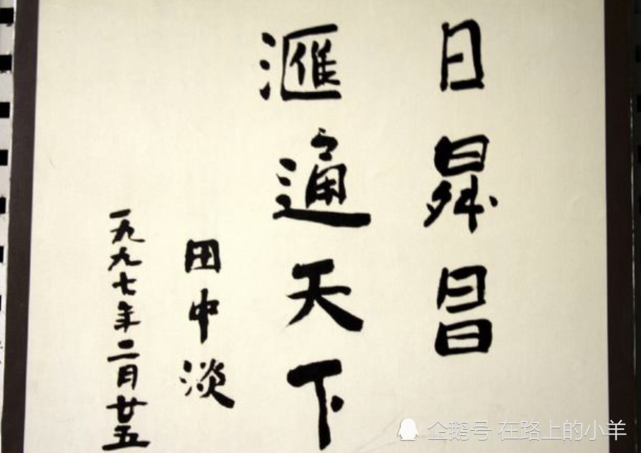 日昇昌
滙通天下
田中淡
一九九七年二月廿五
企鹅号 在路上的小羊